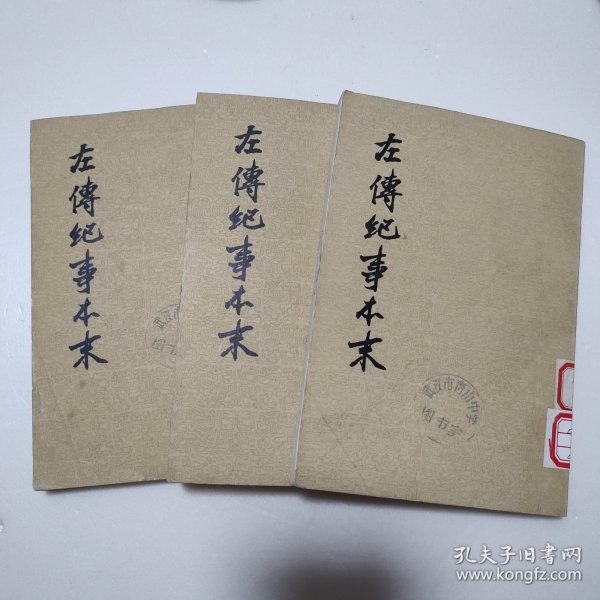 左傳紀事本末
左傳紀事本末
左傳紀事本末
图书室
孔夫子旧书网
www.kongfz.com